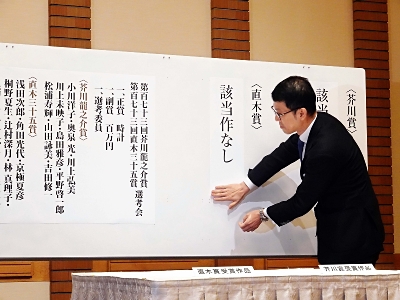 〈芥川賞〉
該当
〈直木賞〉
該当作なし
第百七十三回芥川龍之介賞
第百七十三回直木三十五賞 選考会
一、正賞 時計
一、副賞 百万円
一、選考委員
〈芥川龍之介賞〉
小川洋子・奥泉 光・川上弘美
川上未映子・島田雅彦・平野啓一郎
松浦寿輝・山田詠美・吉田修一
〈直木三十五賞〉
浅田次郎・角田光代・京極夏彦
桐野夏生・辻村深月・林 真理子・
直木賞受賞作品
芥川賞受賞作品